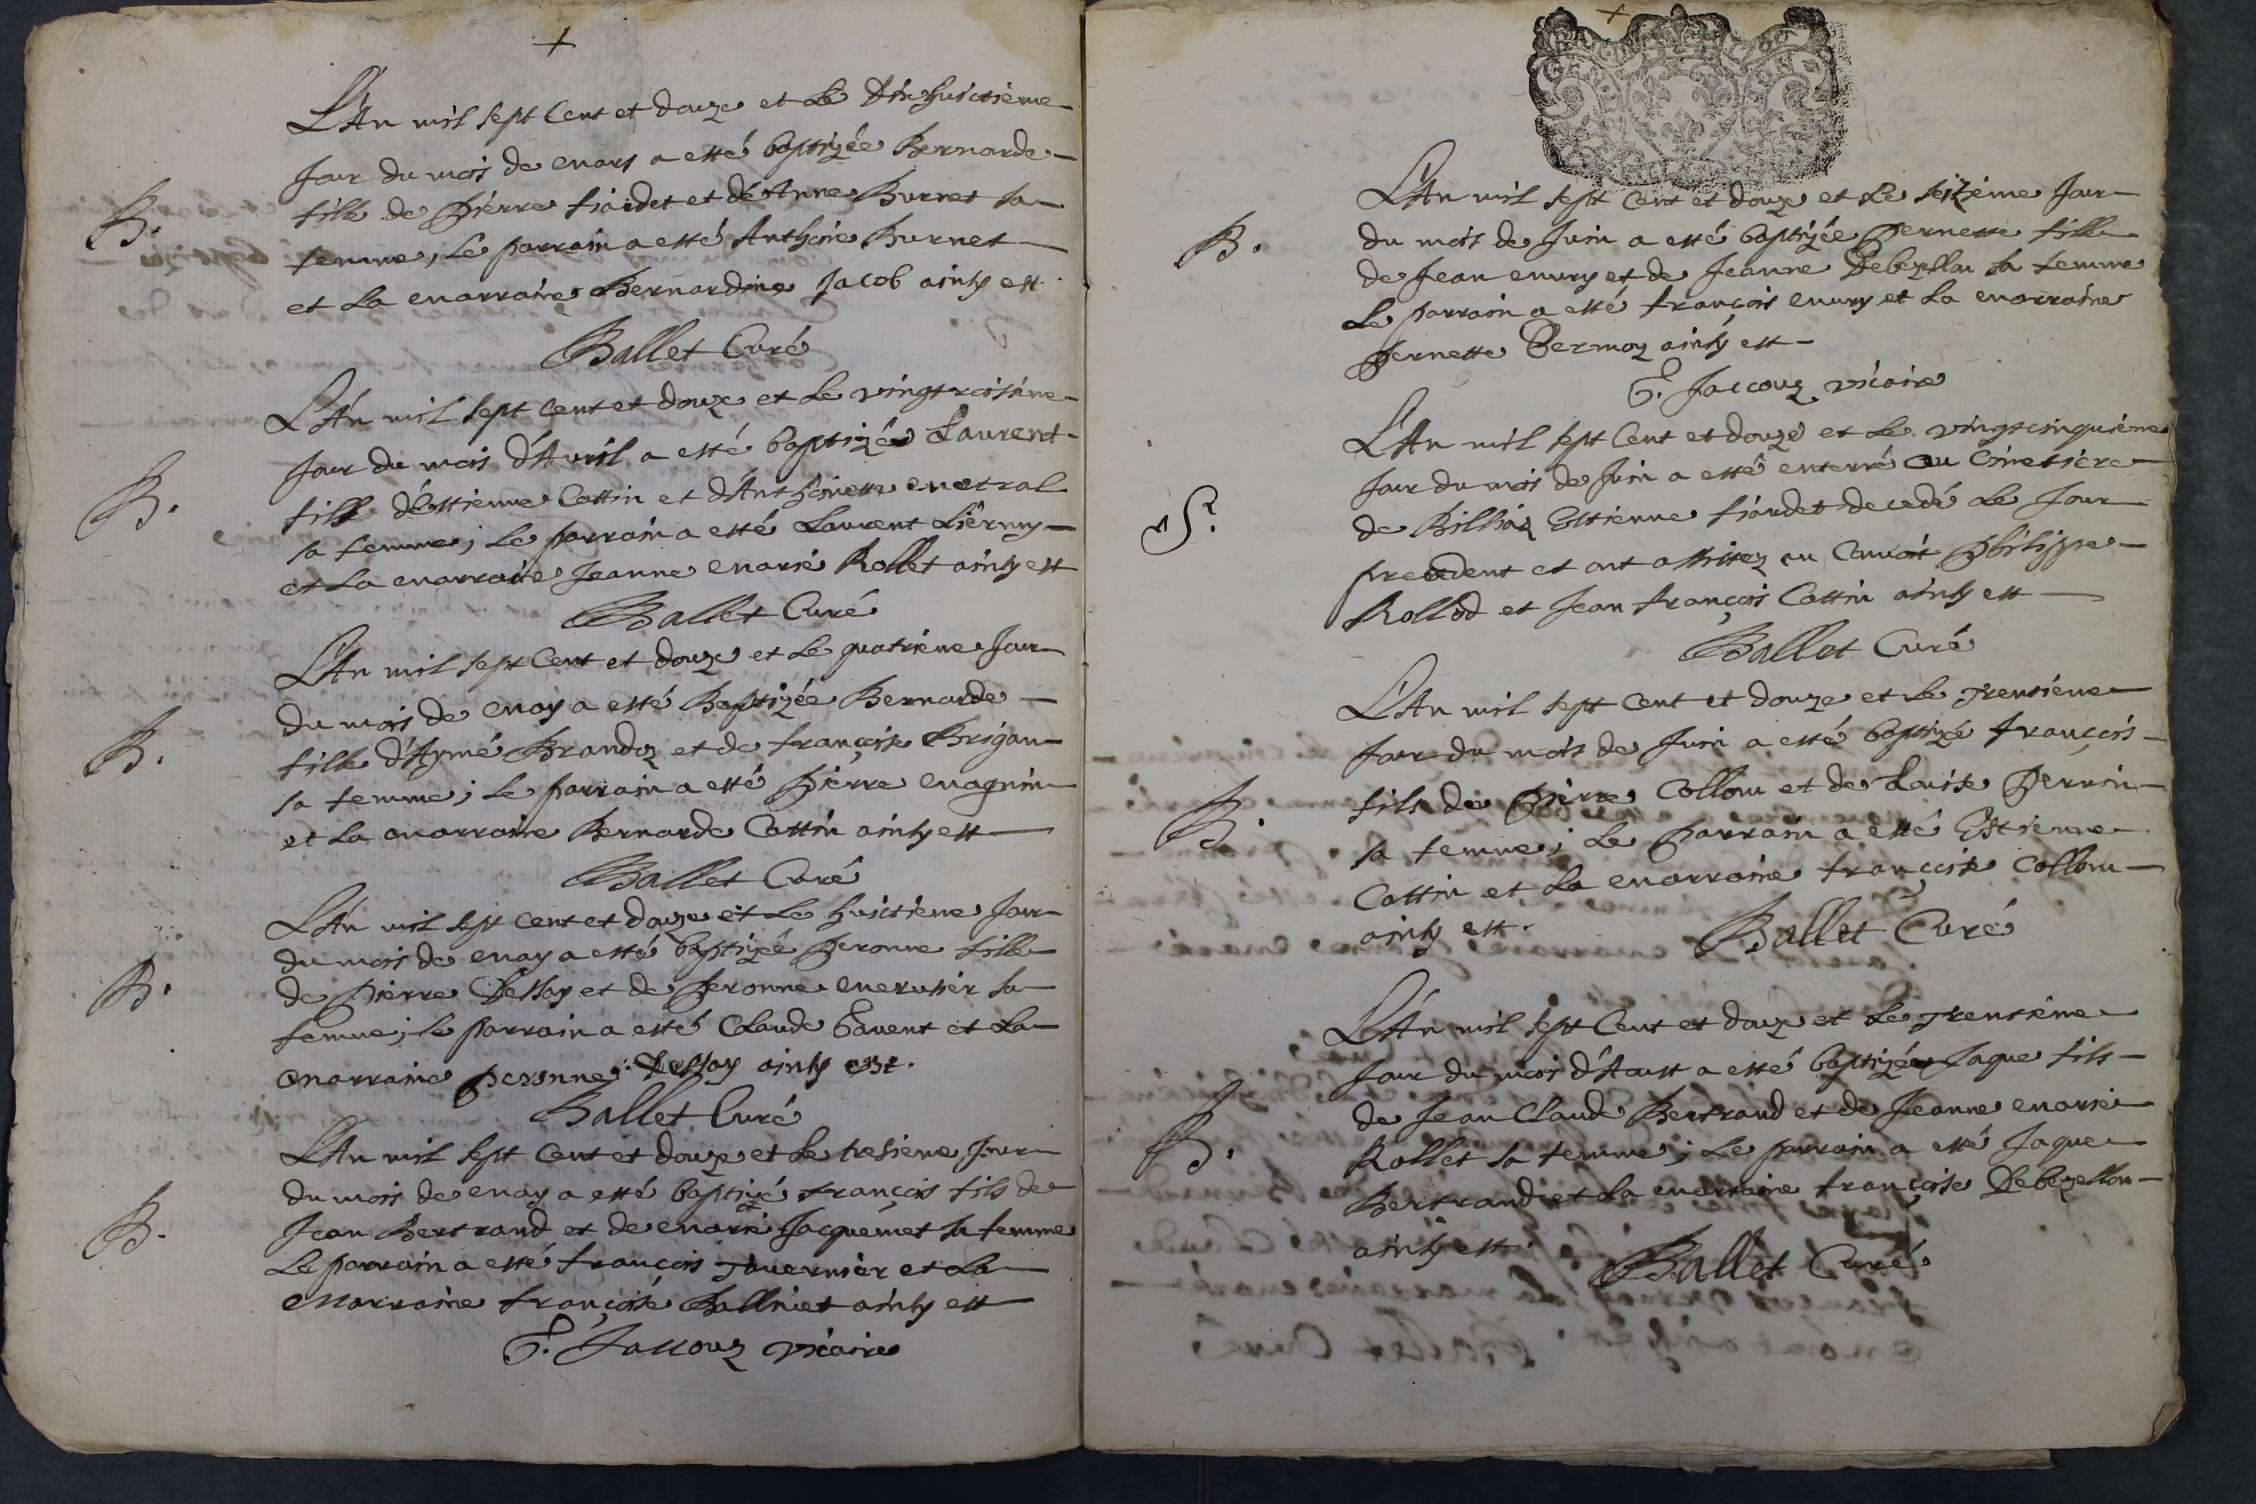 L'An mil sept Cent et douze et Le Dixhuictieme
Jour du mois de mars a esté baptizée Bernarde
B.
fille de Pierre fiardet et de Anne Burnet sa
femme, Le parrain a esté Anthoine Burnet
et La marraine Bernardine Jacob ainsy est.
Ballet Curé
L'An mil sept Cent et douze et Le vingtroisieme
Jour du mois d'Avril a esté baptizée Laurent
B.
fille d'Estienne Cottin et d'Anthoinette metral
sa femme; Le parrain a esté Laurent Liermy
et La marraine Jeanne marie Rollet ainsy est
Ballet Curé
L'An mil sept Cent et douze et Le quatrieme Jour
du mois de may a esté Baptizée Bernarde
B.
fille d'Aymé Brandoz et de françoise Brigan
sa femme; Le parrain a esté Pierre magnin
et La marraine Bernarde Cottin ainsy est
Ballet Curé
L'An mil sept Cent et douze et Le huictieme Jour
du mois de may a esté baptizée Peronne fille
B.
de Pierre Dessay et de Peronne mermier sa
femme; le parrain a esté Claude Gavent et La
marraine peronne Dessay ainsy est.
Ballet Curé
L'An mil sept Cent et douze et Le tresieme Jour
du mois de may a esté baptizé françois fils de
B.
Jean Bertrand et de marie Jacquemet sa femme
Le parrain a esté françois Tavernier et La
Marraine françoise Balliet ainsy est
G. Jaccouz vicaire
L'An mil sept Cent et douze et Le seizieme Jour
B.
du mois de Juin a esté baptizée Pernette fille
de Jean mury et de Jeanne Debezellon sa femme
Le parrain a esté françois mury et La marraine
Pernette Germoz ainsy est
G. Jaccouz vicaire
L'An mil sept Cent et douze et Le vingtcinquieme
Jour du mois de Juin a esté enterré au Cimetiere
S.
de Billiaz Estienne fiardet decedé Le Jour
precedent et ont assistez au Convoit Philippe
Rollod et Jean françois Cottin ainsy est
Ballet Curé
L'An mil sept Cent et douze et Le Trentieme
Jour du mois de Juin a esté baptizé françois
B.
fils de Pierre Collom et de Louise Perrin
sa femme; Le Parrain a esté Estienne
Cottin et La marraine françoise Collom
ainsy est. Ballet Curé
L'An mil sept Cent et douze et Le Trentieme
Jour du mois d'Aoust a esté baptizée Jaque fils
B.
de Jean Claude Bertrand et de Jeanne marie
Rollet sa femme; Le parrain a esté Jaque
Bertrand et La marraine françoise Debezellon
ainsy est.
Ballet Curé